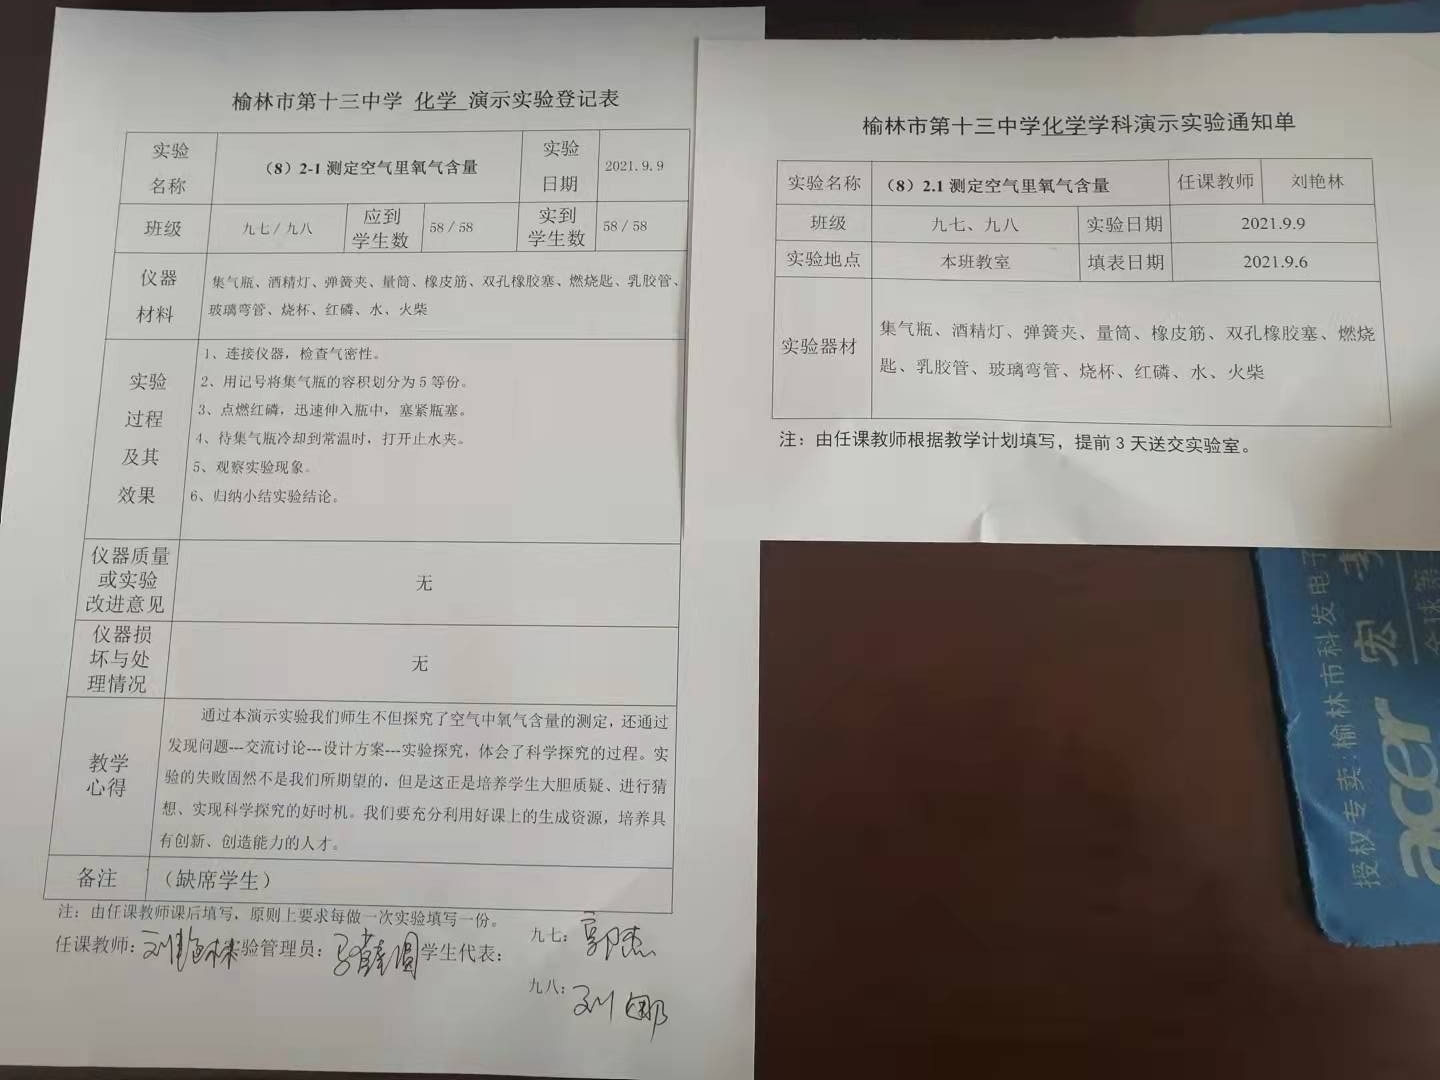 榆林市第十三中学 化学 演示实验登记表
实验
名称
（8）2-1 测定空气里氧气含量
实验
日期
2021.9.9
班级
九七/九八
应到
学生数
58/58
实到
学生数
58/58
仪器
材料
集气瓶、酒精灯、弹簧夹、量筒、橡皮筋、双孔橡胶塞、燃烧匙、乳胶管、
玻璃弯管、烧杯、红磷、水、火柴
实验
过程
及其
效果
1、连接仪器，检查气密性。
2、用记号将集气瓶的容积划分为5等份。
3、点燃红磷，迅速伸入瓶中，塞紧瓶塞。
4、待集气瓶冷却到常温时，打开止水夹。
5、观察实验现象。
6、归纳小结实验结论。
仪器质量
或实验
改进意见
无
仪器损
坏与处
理情况
无
教学
心得
通过本演示实验我们师生不但探究了空气中氧气含量的测定，还通过
发现问题---交流讨论---设计方案---实验探究，体会了科学探究的过程。实
验的失败固然不是我们所期望的，但是这正是培养学生大胆质疑、进行猜
想、实现科学探究的好时机。我们要充分利用好课上的生成资源，培养具
有创新、创造能力的人才。
备注
（缺席学生）
注：由任课教师课后填写，原则上要求每做一次实验填写一份。
任课教师：刘艳林 实验管理员： 学生代表：
九七：郭杰
九八：刘娜
榆林市第十三中学化学学科演示实验通知单
实验名称
（8）2.1 测定空气里氧气含量
任课教师
刘艳林
班级
九七、九八
实验日期
2021.9.9
实验地点
本班教室
填表日期
2021.9.6
实验器材
集气瓶、酒精灯、弹簧夹、量筒、橡皮筋、双孔橡胶塞、燃烧
匙、乳胶管、玻璃弯管、烧杯、红磷、水、火柴
注：由任课教师根据教学计划填写，提前3天送交实验室。
授权专卖:榆林市科发电子
acer 宏
全球第